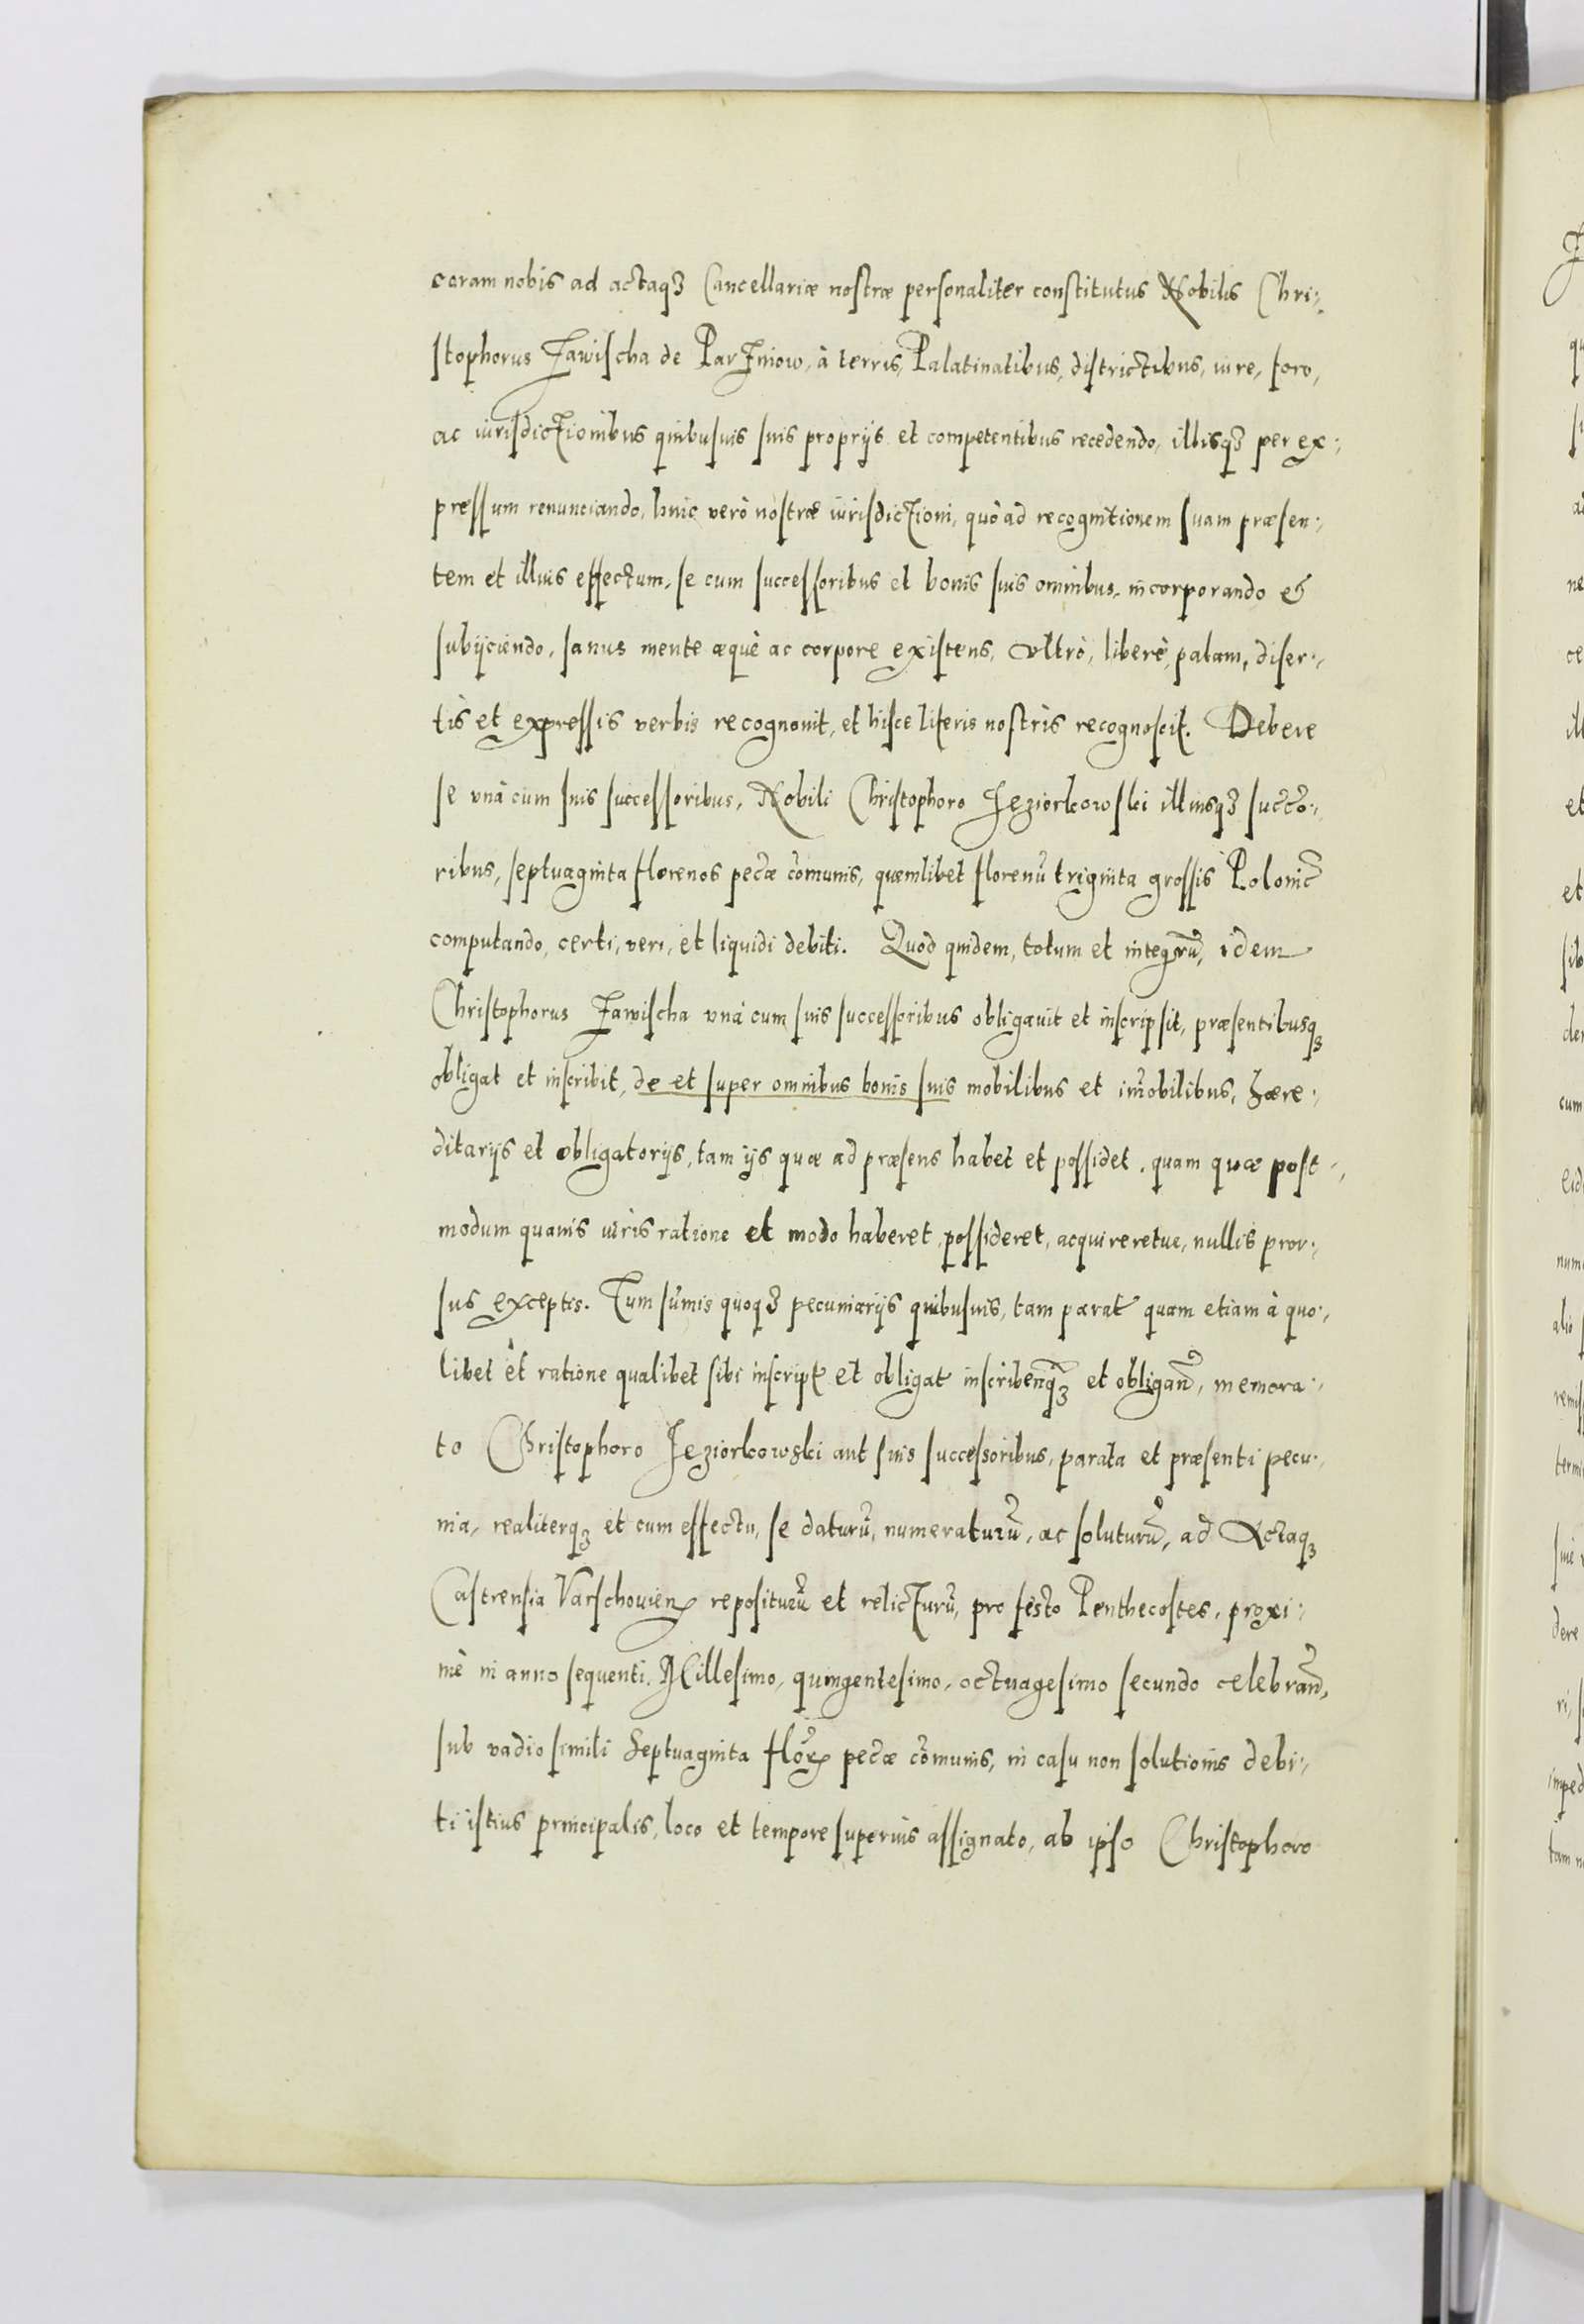 coram nobis ad actaqꝫ Cancellariæ nostræ personaliter constitutus Nobilis Chri:
stophorus Zawischa de Parzniow, à terris, Palatinatibus, districtibus, iure, foro,
ac iurisdictionibus quibusuis suis proprijs et competentibus recedendo, illisqꝫ per ex:
pressum renunciando, huic verò nostræ iurisdictioni, quò ad recognitionem suam præsen:
tem et illius effectum, se cum successoribus et bonis suis omnibus, incorporando et
subijciendo, sanus mente æquè ac corpore existens, vltrò, liberè, palam, diser:
tis et expressis verbis recognouit, et hisce literis nostris recognoscit. Debere
se vnà cum suis successoribus, Nobili Christophoro Jeziorkowski illiusqꝫ succo:
ribus, septuaginta florenos pecæ cõmunis, quemlibet florenũ triginta grossis Polonic
computando, certi, veri, et liquidi debiti. Quod quidem, totum et integrũ, idem
Christophorus Zawischa vnà cum suis successoribus obligauit et inscripsit, præsentibusqꝫ
obligat et inscribit, de et super omnibus bonis suis mobilibus et im̃obilibus, hære:
ditarijs et obligatorijs, tam ijs quæ ad præsens habet et possidet, quam quæ post:
modum quauis iuris ratione et modo haberet, possideret, acquireretue, nullis pror:
sus exceptis. Tum sũmis quoqꝫ pecuniarijs quibusuis, tam parat quam etiam à quo:
libet et ratione qualibet sibi inscript et obligat inscribenqꝫ et obligan, memora:
to Christophoro Jeziorkowski aut suis successoribus, parata et præsenti pecu:
nia, realiterqꝫ et cum effectu, se daturũ, numeraturũ, ac soluturũ, ad Actaqꝫ
Castrensia Varschouien repositurũ et relicturũ, pro festo Penthecostes, proxi:
mè in anno sequenti, Millesimo, quingentesimo, octuagesimo secundo celebran,
sub vadio simili Septuaginta flor pecæ cõmunis, in casu non solutionis debi:
ti istius principalis, loco et tempore superius assignato, ab ipso Christophoro